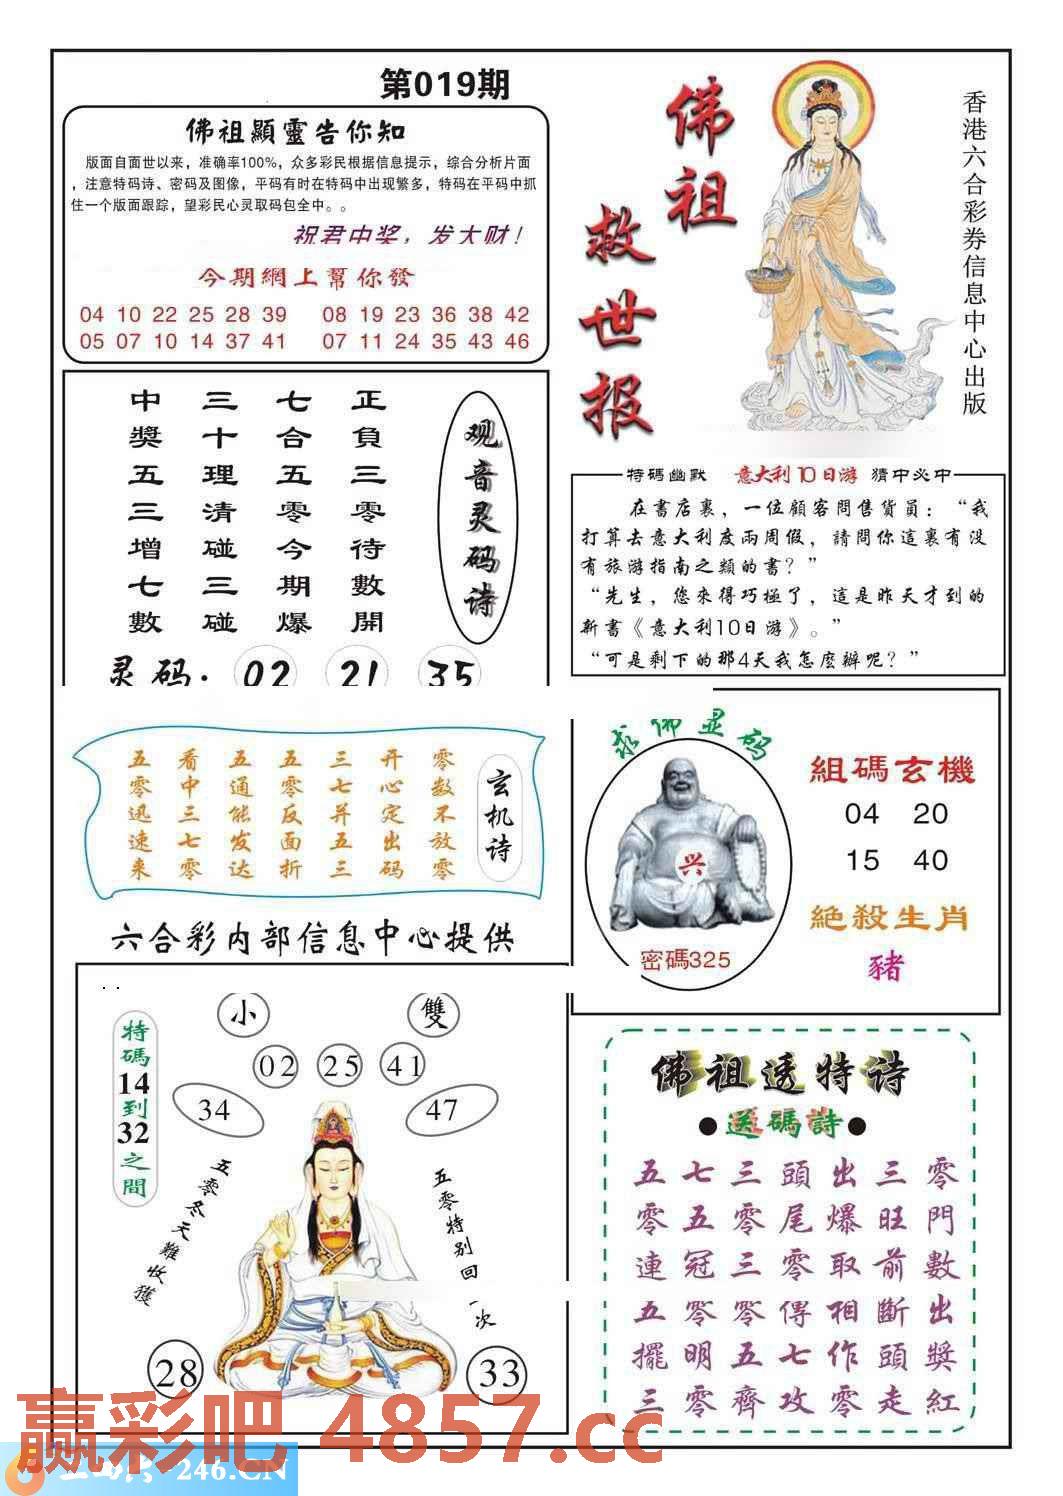 第019期
佛祖顯靈告你知
版面自面世以来，准确率100%，众多彩民根据信息提示，综合分析片面
，注意特码诗、密码及图像，平码有时在特码中出现繁多，特码在平码中抓
住一个版面跟踪，望彩民心灵取码包全中。。
祝君中奖，发大财！
今期網上幫你發
04 10 22 25 28 39 08 19 23 36 38 42
05 07 10 14 37 41 07 11 24 35 43 46
佛祖
救世报
香港六合彩券信息中心出版
观音灵码诗
正負三零待數開
七合五零今期爆
三十理清碰三碰
中獎五三增七數
灵码：02 21 35
特碼幽默 意大利10日游 猜中必中
在書店裏，一位顧客問售貨員：“我
打算去意大利度兩周假，請問你這裏有没
有旅游指南之類的書？”
“先生，您來得巧極了，這是昨天才到的
新書《意大利10日游》。”
“可是剩下的那4天我怎麽辦呢？”
玄机诗
零数不放零
开心定出码
三七并五三
五零反面折
五通能发达
看中三七零
五零迅速来
求佛显码
兴
密碼325
組碼玄機
04 20
15 40
絕殺生肖
豬
六合彩内部信息中心提供
特碼14到32之間
小 雙
02 25 41
34 47
五零冬天難收獲
五零特别回一次
28 33
佛祖透特诗
●送碼詩●
零門數出獎紅
三旺前斷頭走
出爆取相作零
頭尾零傳七攻
三零三零五齊
七五冠零明零
五零連五擺三
赢彩吧 4857.cc
246.CN